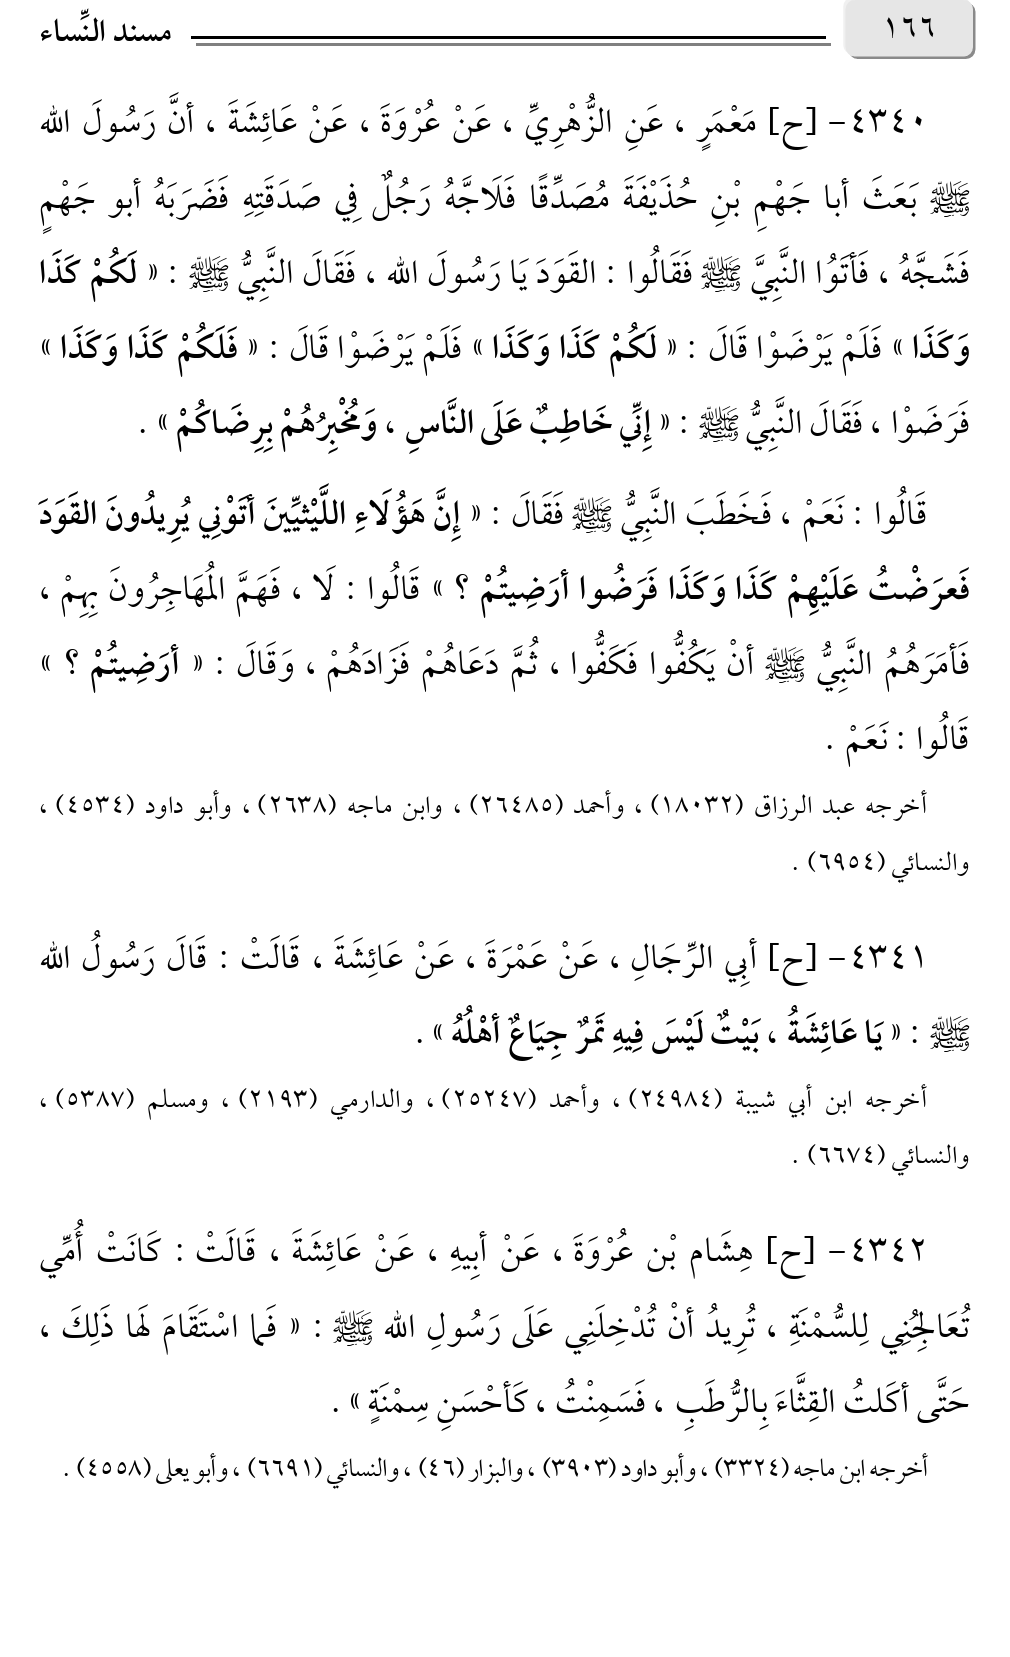 ١٦٦
مسند النِّساء
٤٣٤٠- [ح] مَعْمَرٍ ، عَنِ الزُّهْرِيِّ ، عَنْ عُرْوَةَ ، عَنْ عَائِشَةَ ، أنَّ رَسُولَ الله
ﷺ بَعَثَ أبا جَهْمِ بْنِ حُذَيْفَةَ مُصَدِّقًا فَلَاجَّهُ رَجُلٌ فِي صَدَقَتِهِ فَضَرَبَهُ أبو جَهْمٍ
فَشَجَّهُ ، فَأتَوُا النَّبِيَّ ﷺ فَقَالُوا : القَوَدَ يَا رَسُولَ الله ، فَقَالَ النَّبِيُّ ﷺ : « لَكُمْ كَذَا
وَكَذَا » فَلَمْ يَرْضَوْا قَالَ : « لَكُمْ كَذَا وَكَذَا » فَلَمْ يَرْضَوْا قَالَ : « فَلَكُمْ كَذَا وَكَذَا »
فَرَضَوْا ، فَقَالَ النَّبِيُّ ﷺ : « إنِّي خَاطِبٌ عَلَى النَّاسِ ، وَمُخْبِرُهُمْ بِرِضَاكُمْ » .
قَالُوا : نَعَمْ ، فَخَطَبَ النَّبِيُّ ﷺ فَقَالَ : « إنَّ هَؤُلَاءِ اللَّيْثيِّينَ أتَوْنِي يُرِيدُونَ القَوَدَ
فَعَرَضْتُ عَلَيْهِمْ كَذَا وَكَذَا فَرَضُوا أرَضِيتُمْ ؟ » قَالُوا : لَا ، فَهَمَّ المُهَاجِرُونَ بِهِمْ ،
فَأمَرَهُمُ النَّبِيُّ ﷺ أنْ يَكُفُّوا فَكَفُّوا ، ثُمَّ دَعَاهُمْ فَزَادَهُمْ ، وَقَالَ : « أرَضِيتُمْ ؟ »
قَالُوا : نَعَمْ .
أخرجه عبد الرزاق (١٨٠٣٢) ، وأحمد (٢٦٤٨٥) ، وابن ماجه (٢٦٣٨) ، وأبو داود (٤٥٣٤) ،
والنسائي (٦٩٥٤) .
٤٣٤١- [ح] أبِي الرِّجَالِ ، عَنْ عَمْرَةَ ، عَنْ عَائِشَةَ ، قَالَتْ : قَالَ رَسُولُ الله
ﷺ : « يَا عَائِشَةُ ، بَيْتٌ لَيْسَ فِيهِ تَمْرٌ جِيَاعٌ أهْلُهُ » .
أخرجه ابن أبي شيبة (٢٤٩٨٤) ، وأحمد (٢٥٢٤٧) ، والدارمي (٢١٩٣) ، ومسلم (٥٣٨٧) ،
والنسائي (٦٦٧٤) .
٤٣٤٢- [ح] هِشَام بْن عُرْوَةَ ، عَنْ أبِيهِ ، عَنْ عَائِشَةَ ، قَالَتْ : كَانَتْ أُمِّي
تُعَالِجُنِي لِلسُّمْنَةِ ، تُرِيدُ أنْ تُدْخِلَنِي عَلَى رَسُولِ الله ﷺ : « فَما اسْتَقَامَ لَها ذَلِكَ ،
حَتَّى أكَلتُ القِثَّاءَ بِالرُّطَبِ ، فَسَمِنْتُ ، كَأحْسَنِ سِمْنَةٍ » .
أخرجه ابن ماجه (٣٣٢٤) ، وأبو داود (٣٩٠٣) ، والبزار (٤٦) ، والنسائي (٦٦٩١) ، وأبو يعلى (٤٥٥٨) .